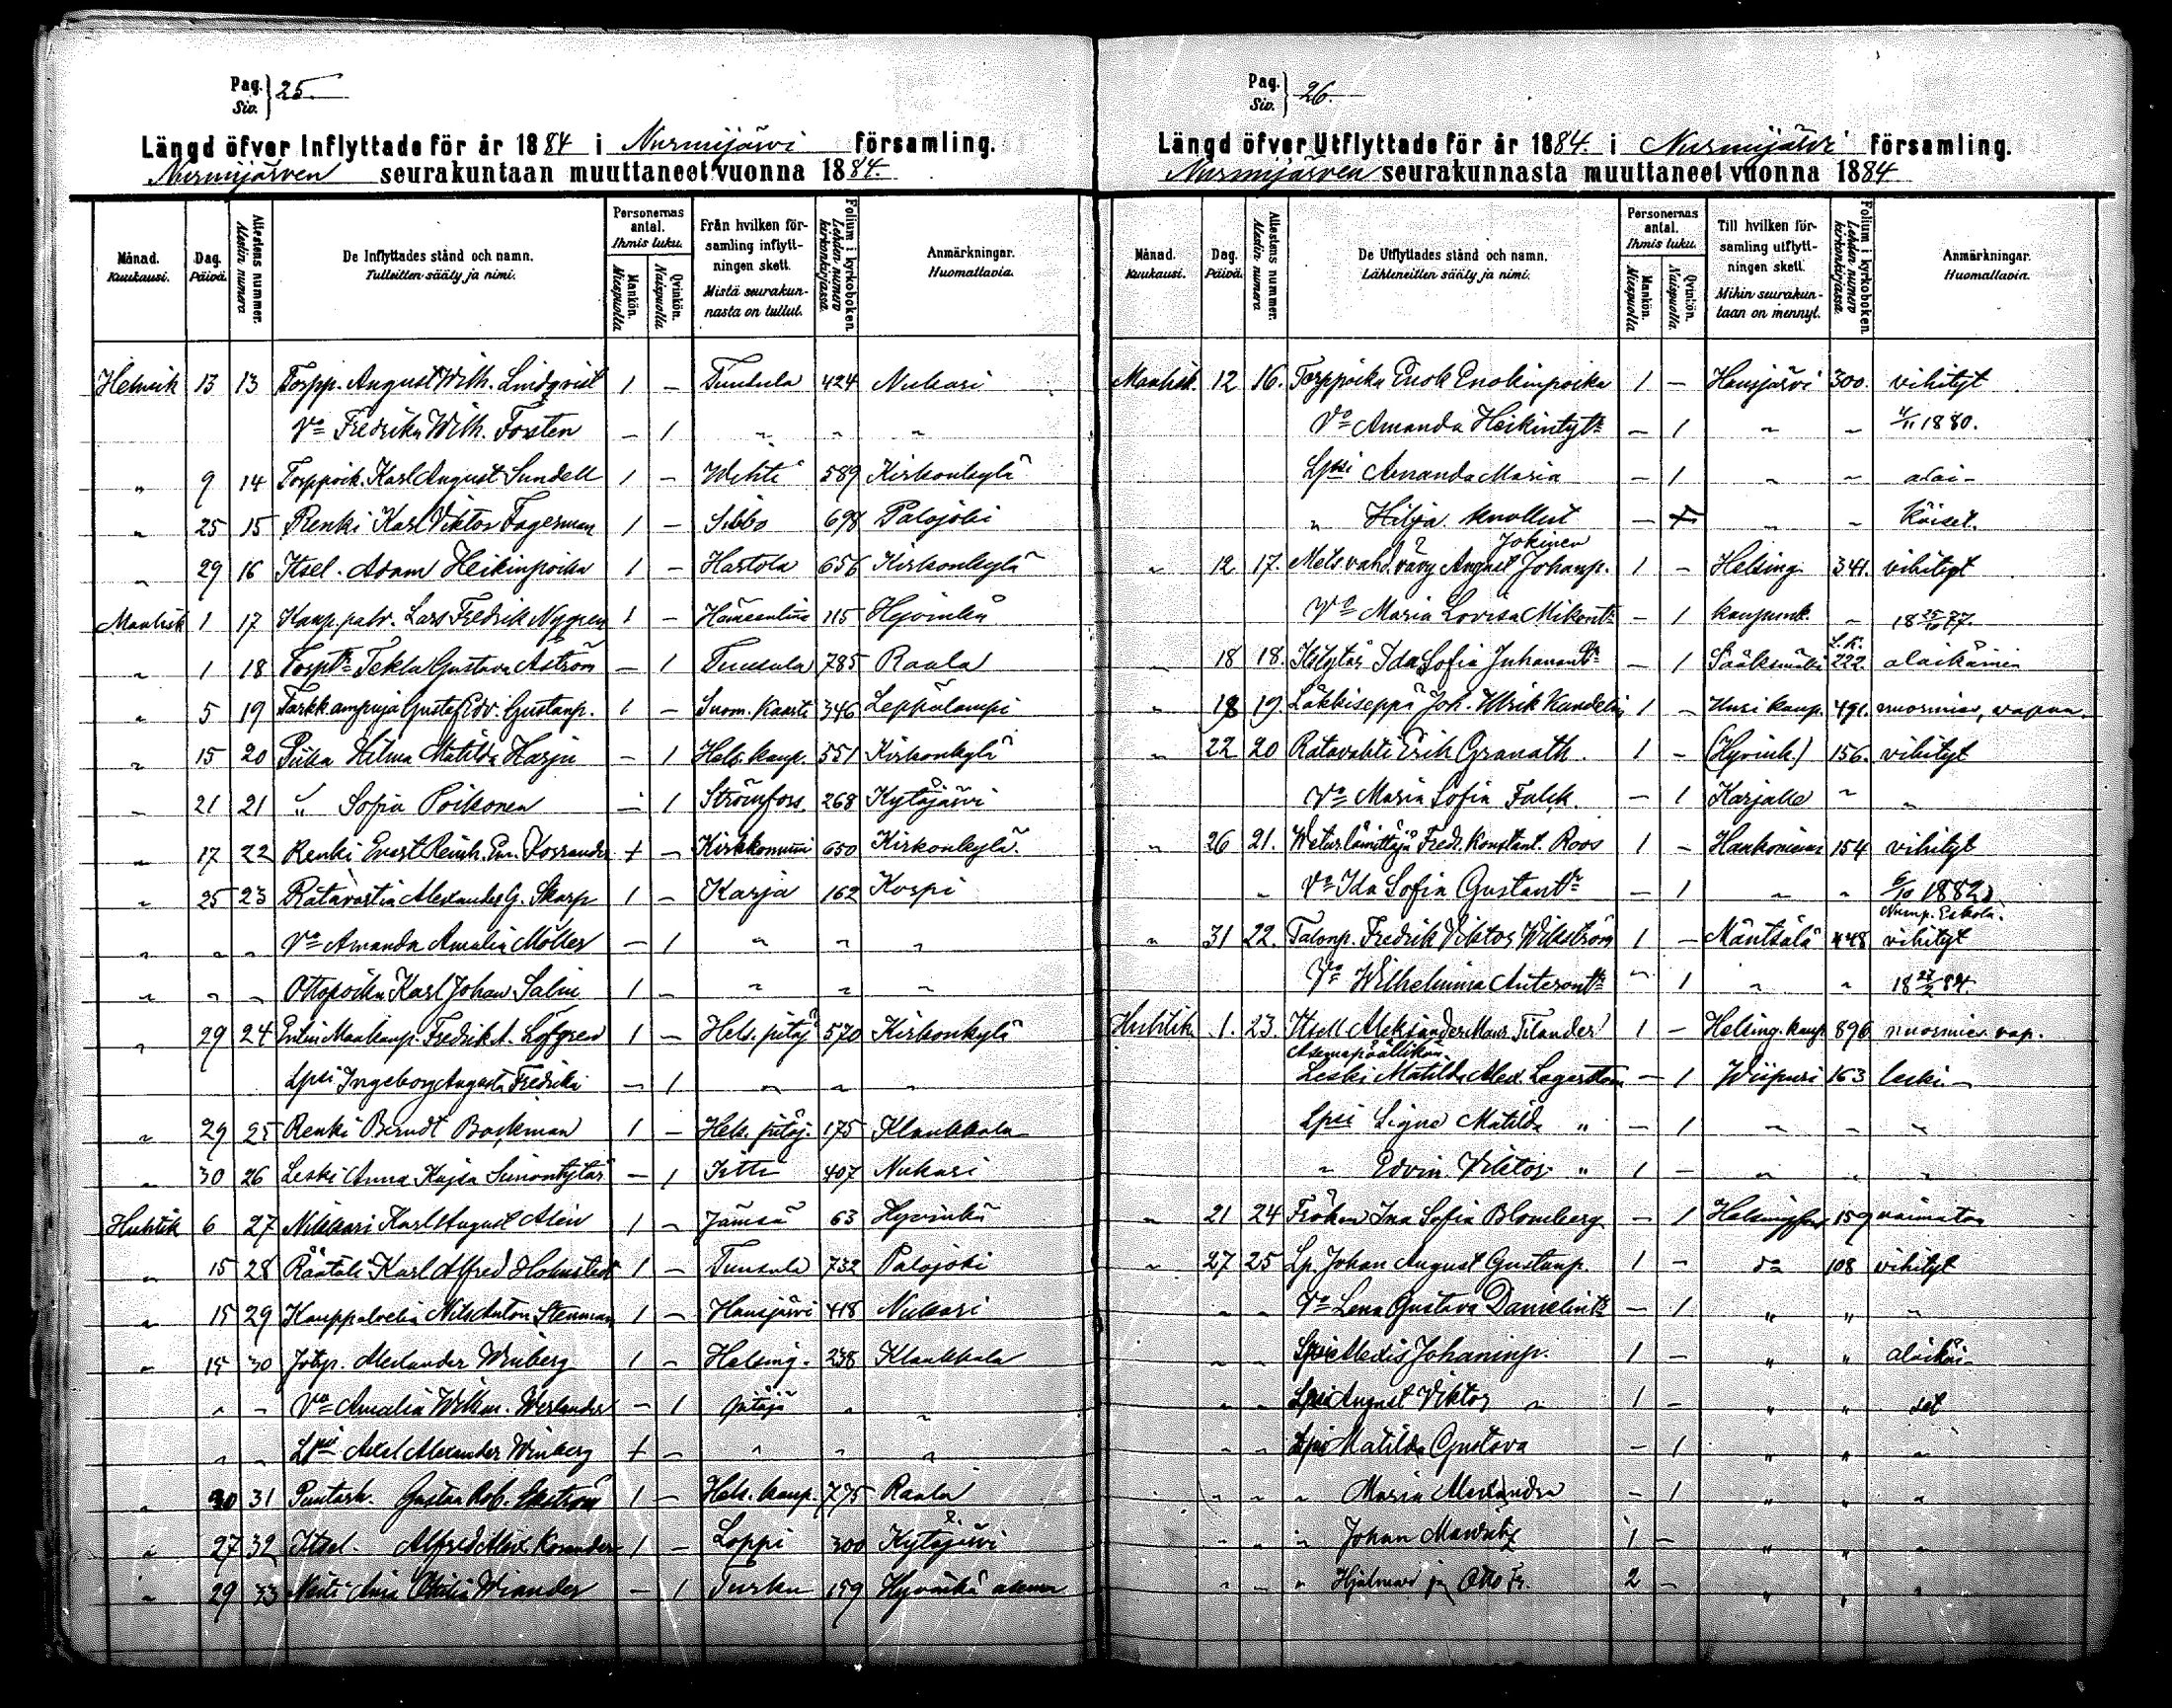 Pag. Siv. } 25.
Längd öfver Inflyttade för år 1884 i Nurmijärvi församling.
Nurmijärven seurakuntaan muuttaneet vuonna 1884.
Månad. Kuukausi.
Dag. Päivä.
Attestens nummer. Atestin numero
De Inflyttades stånd och namn. Tulleitten sääty ja nimi.
Personernas antal. Ihmis luku.
Mankön. Miespuolia
Qvinkön. Naispuolia
Från hvilken församling inflyttningen skett. Mistä seurakunnasta on tullut.
Folium i kyrkoboken. Lehden numero kirkonkirjassa.
Anmärkningar. Huomattavia.
Helmik 13 13 Torpp. August Wilh. Lindqvist 1 - Tuusula 424 Nukari
Vo Fredrika Wilh. Forsten - 1 " " "
" 9 14 Torppoik. Karl August Sundell 1 - Wihti 589 Kirkonkylä
" 25 15 Renki Karl Viktor Fagerman 1 - Sibbo 698 Palojoki
" 29 16 Itsel. Adam Heikinpoika 1 - Hartola 656 Kirkonkylä
Maalisk 1 17 Kaup.palv. Lars Fredrik Nygren 1 - Hämeenlinna 115 Hyvinkä
" 1 18 Torp.tr Tekla Gustava Åström - 1 Tuusula 785 Raala
" 5 19 Tarkkampuja Gustaf Edv. Gustanp. 1 - Suom. Kaarti 346 Leppälampi
" 15 20 Piika Hilma Matilda Harju - 1 Hels. kaup. 551 Kirkonkylä
" 21 21 " Sofia Poikonen - 1 Strömfors 268 Kytäjärvi
" 17 22 Renki Evert Reinh. Em. Forsander + - Kirkkonummi 650 Kirkonkylä.
" 25 23 Ratavartia Alexander G. Skarp 1 - Karja 162 Korpi
" " " Vo Amanda Amalia Möller - 1 " " "
" " " Ottopoika Karl Johan Salin 1 - " " "
" 29 24 Entin. Maakaup. Fredrik A. Löfgren 1 - Hels. pitäj 570 Kirkonkylä
Lpsi Ingeborg Augusta Fredrika - 1 " " "
" 29 25 Renki Berndt Backman 1 - Hels. pitäj. 175 Klaukkala
" 30 26 Leski Anna Kajsa Simontytär - 1 Iitti 407 Nukari
Huhtik 6 27 Nikkari Karl August Alin 1 - Jämsä 63 Hyvinkä
" 15 28 Räätäli Karl Alfred Holmstedt 1 - Tuusula 732 Palojoki
" 15 29 Kauppalvelia Nils Anton Stenman 1 - Hausjärvi 418 Nukari
" 15 30 Alexander Winberg 1 - Helsing. 238 Klaukkala
" " Vo Amalia Wilhm. Werlander - 1 pitäjä " "
" " Lpsi Axel Alexander Winberg + - " " "
" 20 31 Puutarh. Gustaa Rob. Ekström 1 - Hels. kaup. 775 Raala
" 27 32 Itsel. Alfred Alex. 1 - Loppi 300 Kytäjärvi
" 29 33 Neiti Wiander - 1 Turku 159 Hyvinkä asema
Pag. Siv. } 26.
Längd öfver Utflyttade för år 1884. i Nurmijärvi församling.
Nurmijärven seurakunnasta muuttaneet vuonna 1884
Månad. Kuukausi.
Dag. Päivä.
Attestens nummer. Atestin numero
De Utflyttades stånd och namn. Lähteneitten sääty ja nimi.
Personernas antal. Ihmis luku.
Mankön. Miespuolia
Qvinkön. Naispuolia.
Till hvilken församling utflyttningen skett. Mihin seurakuntaan on mennyt.
Folium i kyrkoboken. Lehden numero kirkonkirjassa.
Anmärkningar. Huomattavia.
Maalisk. 12 16. Torppoika Enok Enokinpoika 1 - Hausjärvi 300. vihityt
Vo Amanda Heikintytr - 1 " " 4/11 1880.
Lpsi Amanda Maria - 1 " " alai-
" Hilja kuollut - + " " käiset.
Jokinen
" 12 17. Mets.vahd. August Johanp. 1 - Helsing. 341. vihityt
Vo Maria Lovisa Mikont. - 1 kaupunk. " 18 25/10 77.
" 18 18. Ida Sofia Juhanantr - 1 Sääksmäki L.K. 222 alaikäinen
" 18 19. Läkkiseppä Joh. Ulrik Kandelin 1 - Uusi kaup. 491. nuormies, vapaa.
" 22 20 Ratavahti Erik Granath. 1 - (Hyvink.) 156. vihityt
Vo Maria Sofia Falck. - 1 Karjalle " "
" 26 21. Weturlämittäjä Fredr. Konstant. Roos 1 - Hankoniemi 154 vihityt
" Vo Ida Sofia Gustantr - 1 " " 6/10 1882
Nump. Eskola.
" 31 22. Talonp. Fredrik Viktor Wikström 1 - Mäntsälä 448 vihityt
Vo Wilhelmina Anteront. - 1 " " 18 27/2 84.
Huhtik. 1. 23. Itsell Aleksander Maur. Tilander 1 - Helsing. kaup 896 nuormies vap.
Asemapäällikön
Leski Matilda Alex. Lagerström - 1 Wiipuri 163 leski
Lpsi Signe Matilda " - 1 " " "
" Edvin Viktor " 1 - " " "
" 21 24 Fröken Ina Sofia Blomberg - 1 Helsingfors 159 naimaton
" 27 25 Lp. Johan August Gustanp. 1 - do 108 vihityt
" " Vo Lena Gustava Danielint. - 1 " " "
" " Lpsi Alexis Johaninp. 1 - " " alaikäi-
" " Lpsi August Viktor " 1 - " " set
" " Lpsi Matilda Gustava - 1 " " "
" " " Maria Alexandra - 1 " " "
" " " Johan 1 - " " "
" " " Hjalmar ja Otto Fr. 2 - " " "